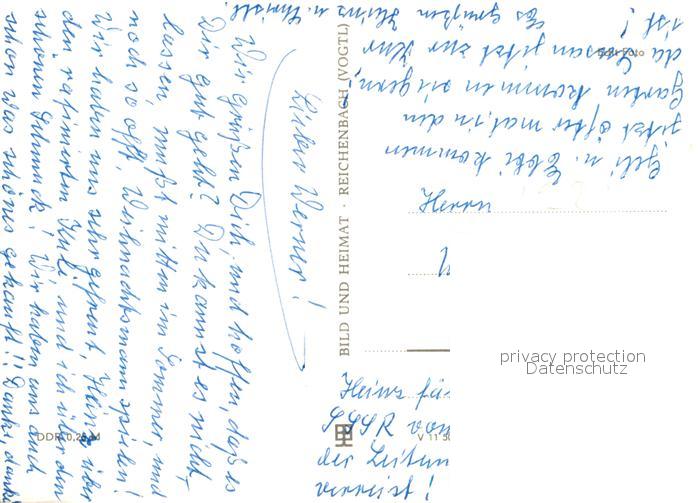 Lieber Werner!
Wir grüßen Dich, und hoffen, daß es
Dir gut geht? Du kannst es nicht
lassen, mußt mitten im Sommer, und
noch so oft, Weihnachtsmann spielen!
Wir haben uns sehr gefreut, Heinz über
den rafinierten Kuli und ich über den
schönen Schmuck! Wir haben uns auch
schon was schönes gekauft!! Danke, danke
Es grüßen Heinz u.
BILD UND HEIMAT · REICHENBACH (VOGTL)
Echt Foto
Gabi u. Ebbi kommen
jetzt öfter mal, in den
Garten
da Susan jetzt zur Kur
ist!
Herrn
Heinz
DDR 0,25 M
V 11 50
privacy protection
Datenschutz